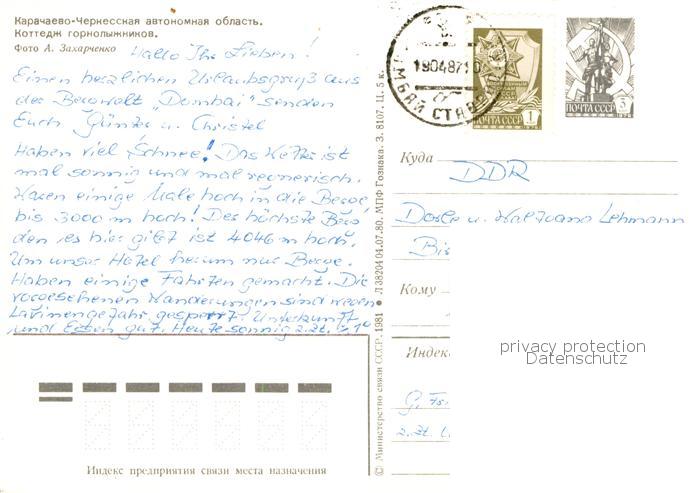 Карачаево-Черкесская автономная область.
Коттедж горнолыжников.
Фото А. Захарченко
Hallo Ihr Lieben!
Einen herzlichen Urlaubsgruß aus
der Bergwelt "Dombai" senden
Euch Günter u. Christel
Haben viel Schnee! Das Wetter ist
mal sonnig und mal regnerisch.
Waren einige Male hoch in die Berge
bis 3000 m hoch! Der höchste Berg
den es hier gibt ist 4046 m hoch.
Um unser Hotel herum nur Berge.
Haben einige Fahrten gemacht. Die
vorgesehenen Wanderungen sind wegen
Lavinengefahr gesperrt. Unterkunft
und Essen gut. Heute sonnig z.Zt.
Индекс предприятия связи места назначения
© Министерство связи СССР. 1981 ● Л 38204 04.07.80. МПФ Гознака. З. 8107. Ц. 5 к.
19048710
СТАВР
ПОЧТА СССР 1
ПОЧТА СССР 3
Куда
DDR
u. Lehmann
Кому
Индекс
z.Zt.
privacy protection
Datenschutz